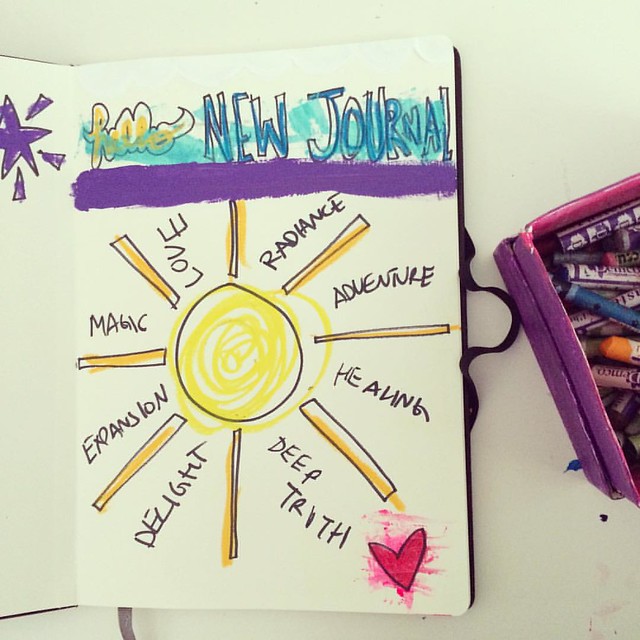 hello NEW JOURNAL
LOVE
RADIANCE
ADVENTURE
HEALING
DEEP
TRUTH
DELIGHT
EXPANSION
MAGIC